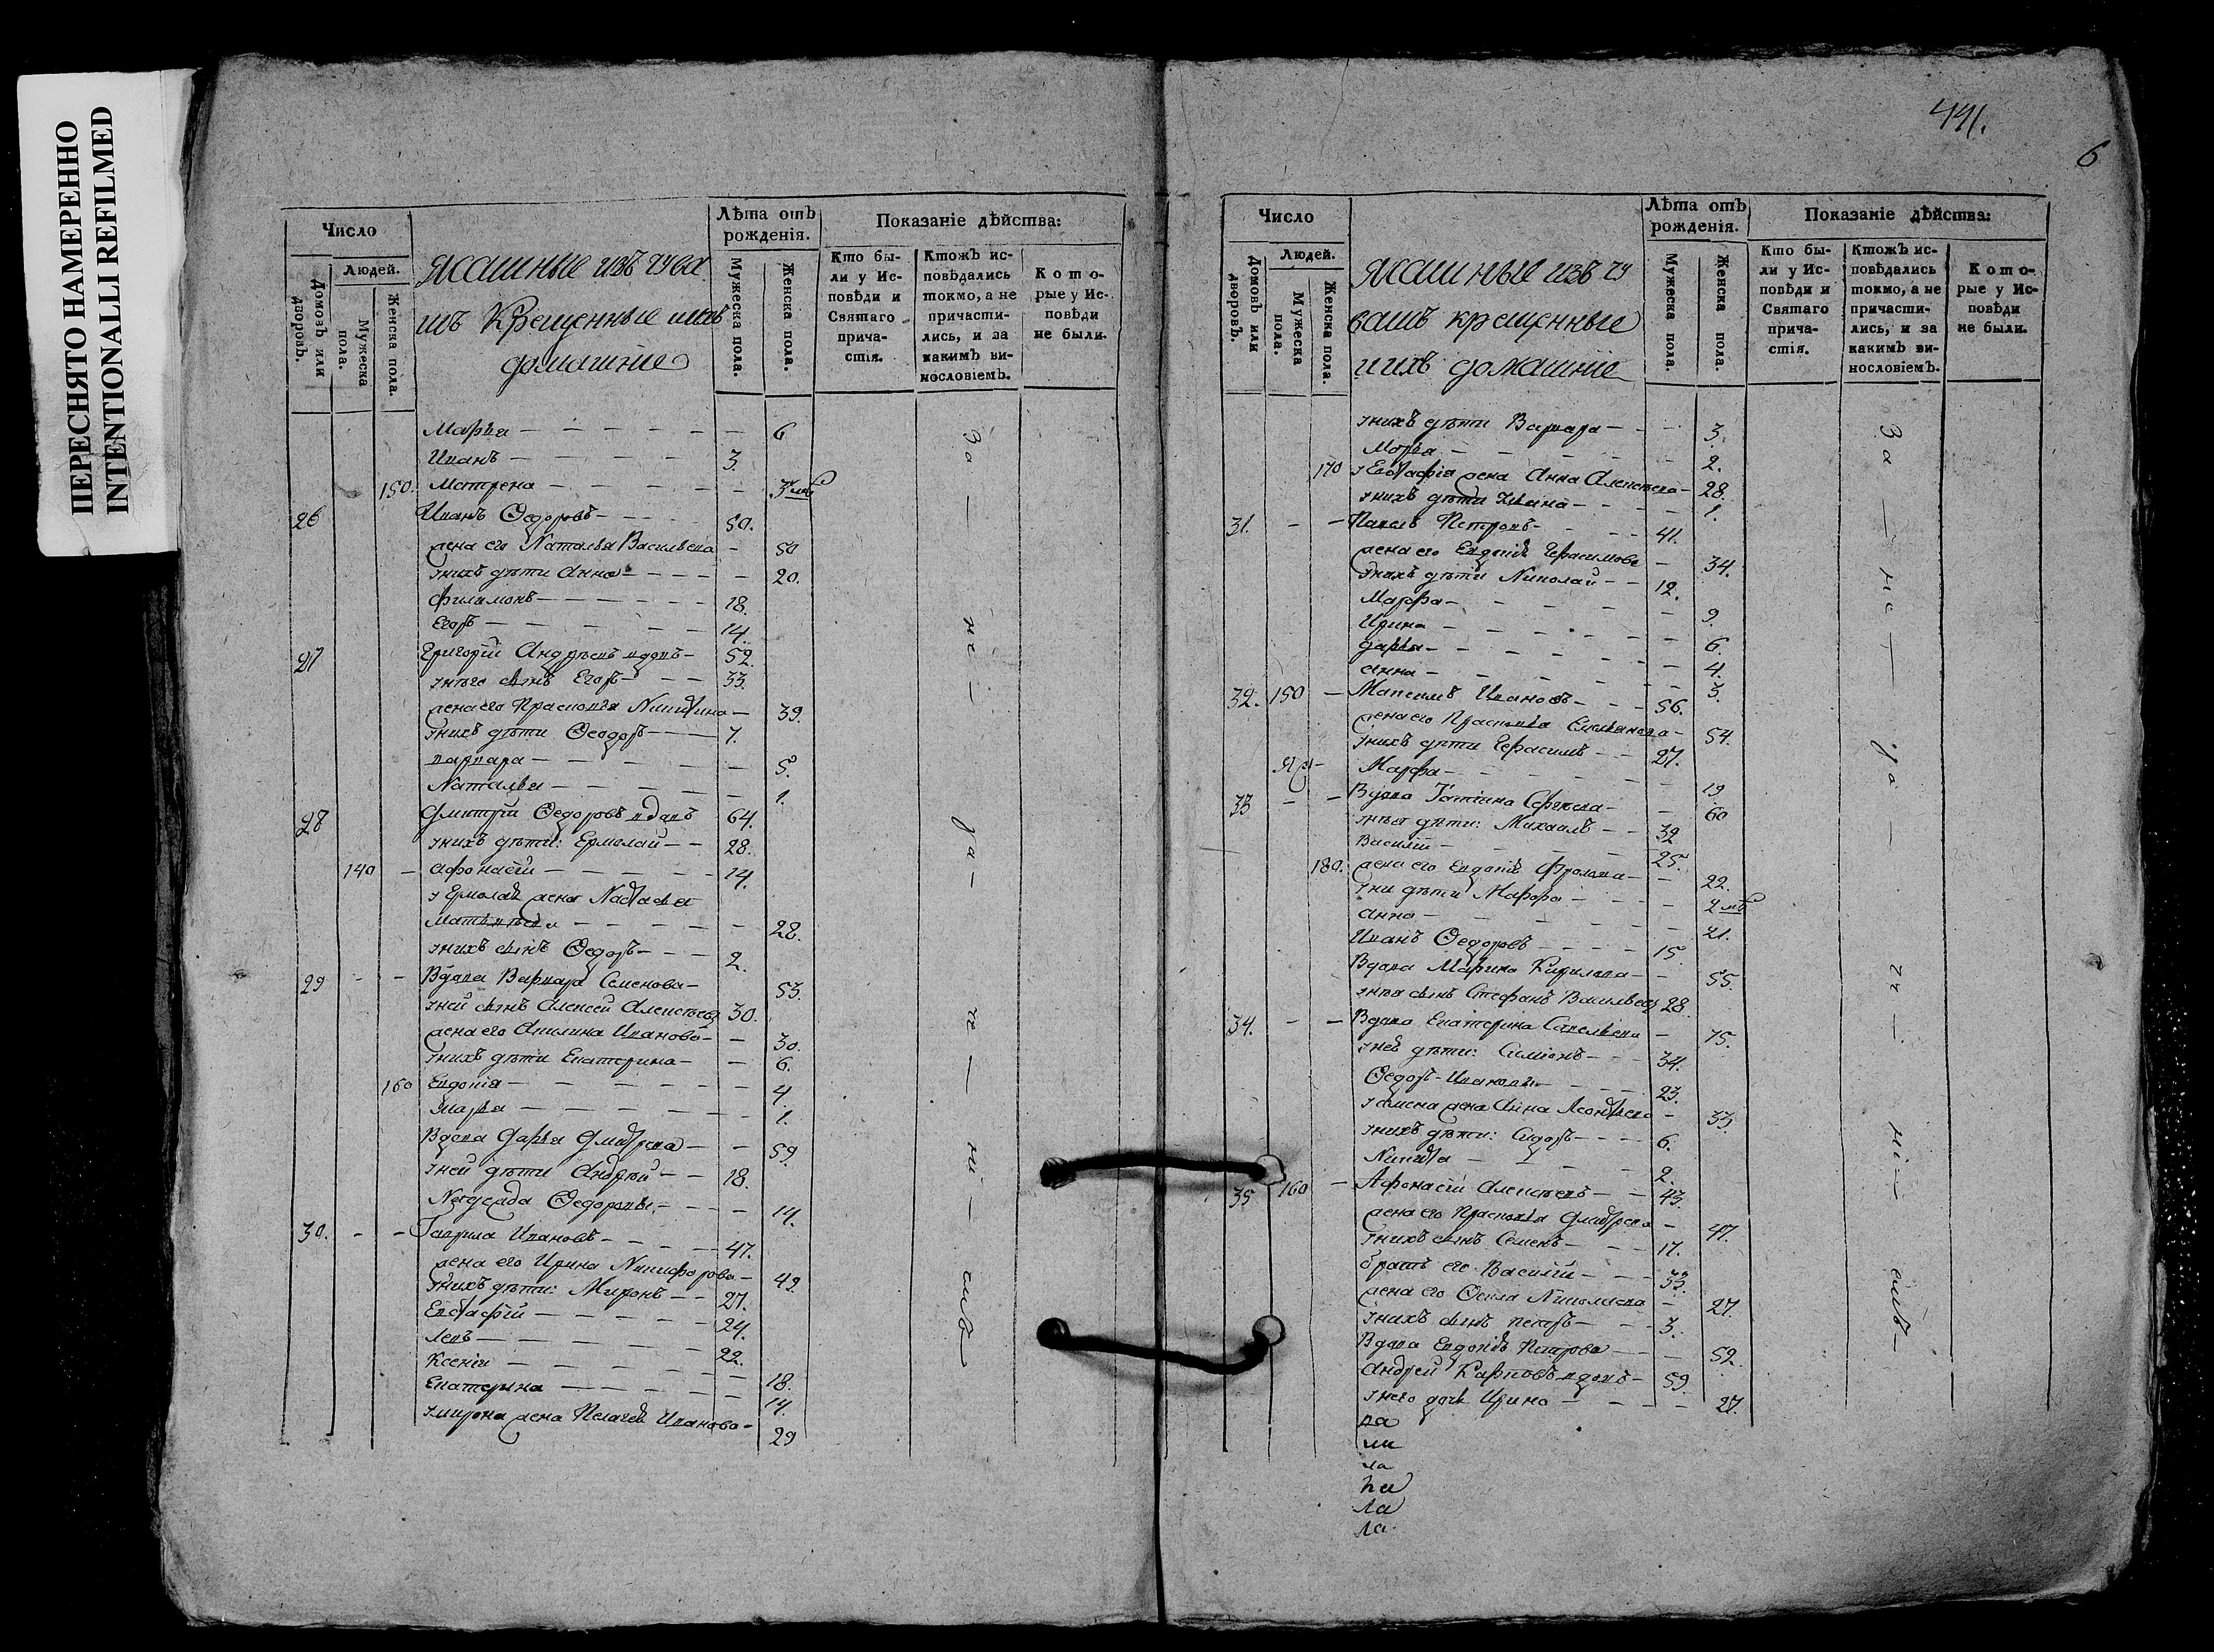 ПЕРЕСНЯТО НАМЕРЕННО
INTENTIONALLI REFILMED
Число
Людей.
Домовъ или дворовъ.
Мужеска пола.
Женска пола.
Ясашные изъ чува
шъ Крещенные
домашніе
Лѣта отъ рожденія.
Мужеска пола.
Женска пола.
Показаніе дѣйства:
Кто были у Исповѣди и Святаго причастія.
Ктожъ исповѣдались токмо, а не причастились, и за какимъ винословіемъ.
Которые у Исповѣди не были.
Марья — 6
Иванъ — 3.
150. Матрена — 3
26 Иванъ Ѳедоровъ — 50.
жена его Наталья Васильева — 50
у нихъ дѣти Анна — 20.
Филимонъ — 18.
Егоръ — 14.
27 Григорій Андрѣевъ вдовъ — 52.
у него сынъ Егоръ — 33.
жена его Прасковья Никитина — 39.
у нихъ дѣти Ѳеодоръ — 7.
варвара — 5.
Наталья — 1.
28 Дмитрій Ѳедоровъ вдовъ 64.
у нихъ дѣти: Ермолай — 28.
140 — Афонасій — 14.
у Ермолая жена Настасья
Матвѣева — 28.
у нихъ сынъ Ѳедоръ — 2.
29 - - Вдова Варвара Семенова — 53.
у ней сынъ Алексей Алексѣевъ 30.
жена его Акилина Иванова — 30.
у нихъ дѣти Екатерина — 6.
160 Евдокія — 4
Марья — 1.
Вдова Дарья Дмитрева — 59.
у ней дѣти Андрѣй — 18.
Ѳедоровы — 14.
30. - - Гаврила Ивановъ — 47.
жена его Ирина Никифорова — 49.
у нихъ дѣти: Миронъ — 27.
Евстафій — 24.
Левъ — 22.
Ксенія — 18.
Екатерина — 14.
у мирона жена Пелагея Иванова — 29
За — не — до — че — ні — емъ
441.
6
Число
Людей.
Домовъ или дворовъ.
Мужеска пола.
Женска пола.
Ясашные изъ чу
вашъ крещенные
и ихъ домашніе
Лѣта отъ рожденія.
Мужеска пола.
Женска пола.
Показаніе дѣйства:
Кто были у Исповѣди и Святаго причастія.
Ктожъ исповѣдались токмо, а не причастились, и за какимъ винословіемъ.
Которые у Исповѣди не были.
у нихъ дѣти Варвара — 3.
Марья — 2.
170 у Евстафія жена Анна Алексѣева — 28.
у нихъ дѣти — 1.
31. - - Павелъ Петровъ — 41.
жена его Евдокія Герасимова — 34.
у нихъ дѣти Николай — 12.
Марфа — 9.
Ирина — 6.
дарья — 4.
анна — 3.
32. 150 — Максимъ Ивановъ — 56.
жена его Прасковья Емельянова — 54.
у нихъ дѣти Герасимъ — 27.
Марфа — 19
33 - - Вдова Татіана Сергеева — 60
у нея дѣти: Михаилъ — 32
Василій — 25.
180. жена его Евдокія Фролова — 22.
дѣти Марфа — 2
анна — 21.
Иванъ Ѳедоровъ — 15.
Вдова Марина Кирилова — 55.
у нея сынъ Стефанъ Васильевъ 28.
34. - - Вдова Екатерина Савельева — 75.
у ней дѣти: Симіонъ — 34.
Ѳедоръ Ивановы — 23.
жена Анна Леонтьева — 33.
у нихъ дѣти: Сидоръ — 6.
Никита — 2.
35 160 — Афонасій Алексѣевъ — 43.
жена его Прасковья Дмитрева — 47.
у нихъ сынъ Семенъ — 17.
братъ его Василій — 33.
жена его Ѳекла Николаева — 27.
у нихъ сынъ петръ — 3.
Вдова Евдокія Петрова — 52.
Андрей Карповъ вдовъ — 59.
у него дочь Ирина — 27.
За — не — до — че — ні — емъ
ва
ла
ла